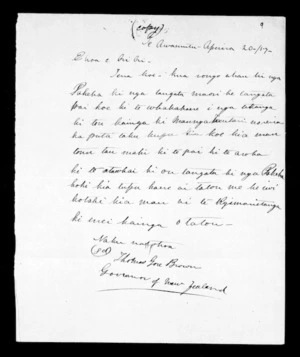 (copy)
Te Awamutu Aperira 20/57
E hoa e
Tena koe - kua rongo ahau ki nga
Pakeha ki nga tangata maori he tangata
pai koe ki te whakahaere i nga
ki tou kainga ki
ka puta taku kupu kia koe kia mau
tonu tau mahi ki te pai ki te aroha
ki te atawhai ki ou tangata ki nga Pakeha
hoki kia tupu hare ai tatou me he iwi
kotahi kia mau ai te Rangimarietanga
ki enei kainga o tatou -
Naku na to hoa
(sd) Thomas Gore Brown
Governor of New Zealand